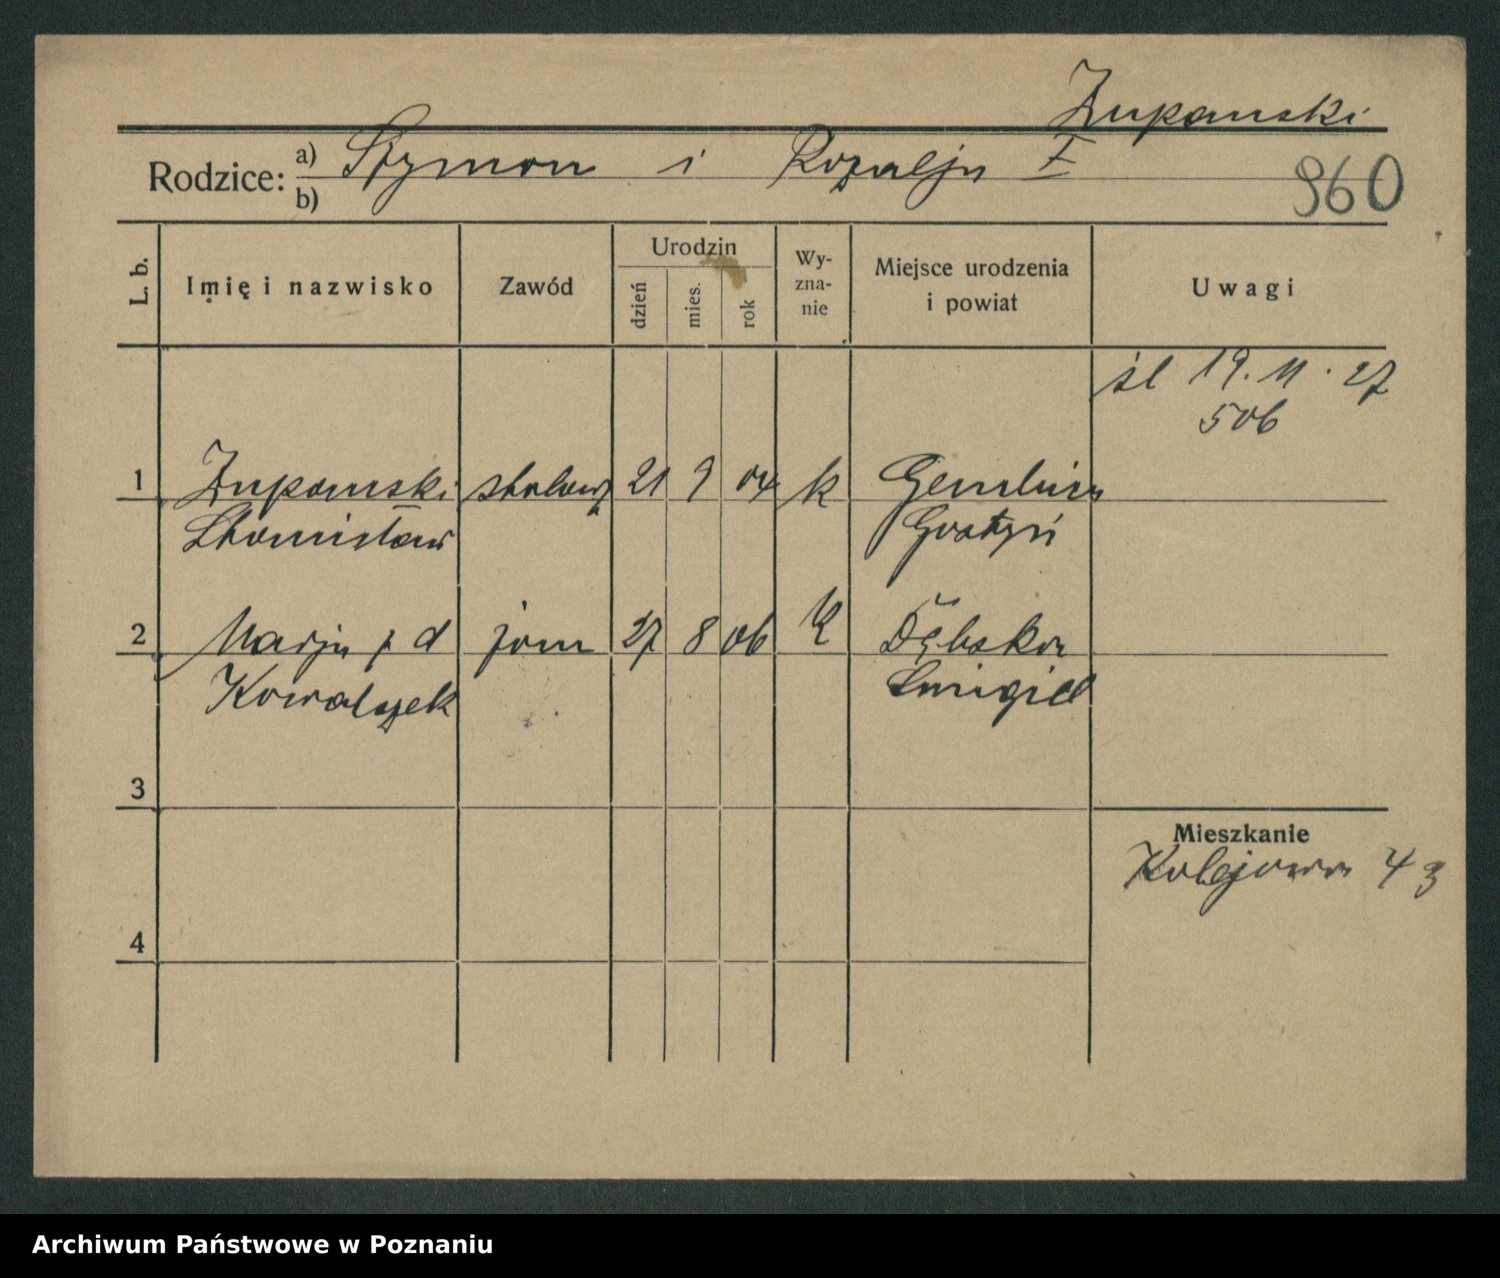 Żupanski
Rodzice: a) Szymon i Rozalja Ż
b)
960
L. b. Imię i nazwisko Zawód Urodzin dzień mies. rok Wy-zna-nie Miejsce urodzenia i powiat Uwagi
śl 19. 11. 27
506
1 Żupanski stolarz 21 9 04 k Gembice
Stanisław Gostyń
2 Marja z d żona 27 8 06 k Dębsko
Kowalczek Śmigiel
3
Mieszkanie
Kolejowa 43
4
Archiwum Państwowe w Poznaniu